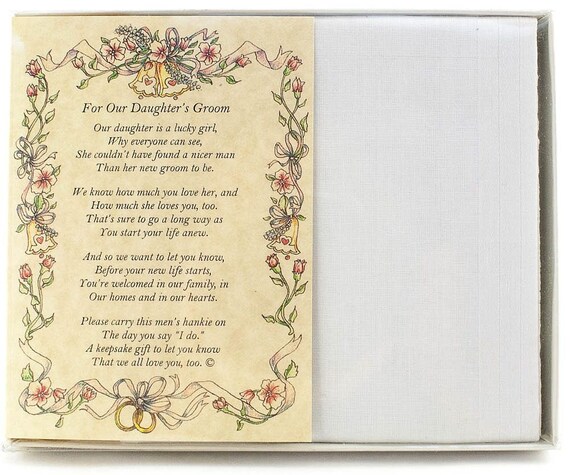 For Our Daughter's Groom
Our daughter is a lucky girl,
Why everyone can see,
She couldn't have found a nicer man
Than her new groom to be.
We know how much you love her, and
How much she loves you, too.
That's sure to go a long way as
You start your life anew.
And so we want to let you know,
Before your new life starts,
You're welcomed in our family, in
Our homes and in our hearts.
Please carry this men's hankie on
The day you say "I do."
A keepsake gift to let you know
That we all love you, too. ©